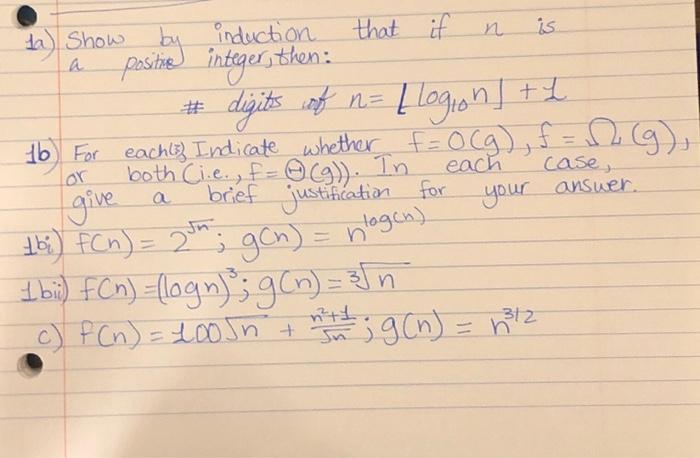 1a) Show by induction that if n is
a positive integer, then:
# digits of n = ⌊log₁₀n⌋ + 1
1b) For each(3) Indicate whether f=O(g), f=Ω(g),
or both (i.e., f=Θ(g)). In each case,
give a brief justification for your answer.
1bi) f(n) = 2^√n; g(n) = n^log(n)
1bii) f(n) =(logn)³; g(n)=∛n
c) f(n) = 100√n + (n²+1)/√n; g(n) = n^3/2